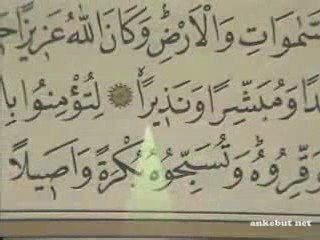 لسَّمٰوَاتِ وَالْاَرْضِۜ وَكَانَ اللّٰهُ عَز۪يزًا
وَمُبَشِّرًا وَنَذ۪يرًاۙ لِتُؤْمِنُوا بِا
وَتُوَقِّرُوهُۜ وَتُسَبِّحُوهُ بُكْرَةً وَاَص۪يلًا
ankebut net